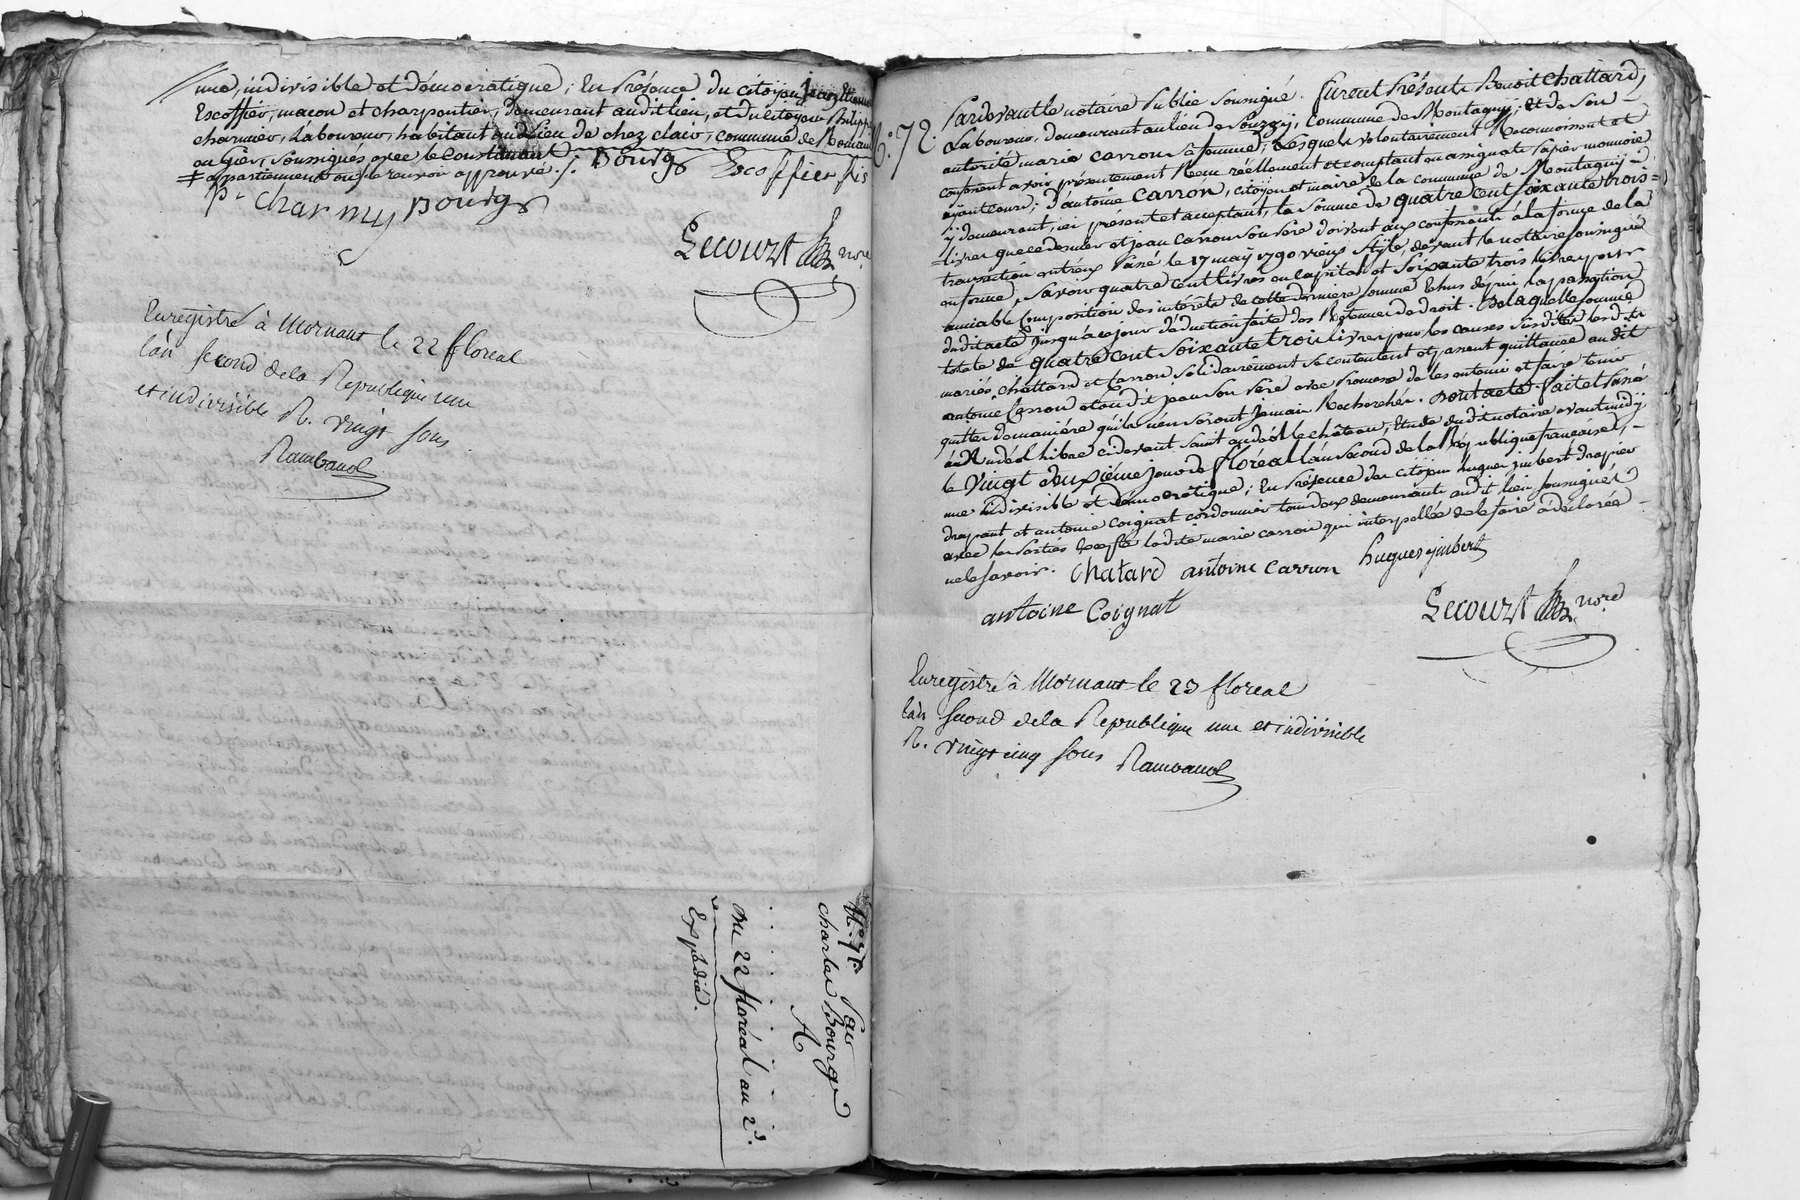 une, indivisible et démocratique; En Présence du citoyen Jean Etienne
Escoffier, macon et charpentier, demeurant audit lieu, et du citoyen Philippe
charmier, Laboureur, habitant au Lieu de chez clair, commune de Romain
au gier, Soussignés avec le Constituant
appartiennent ou le renvoi approuvé ./. Bourg Escoffier fils
pr Charmy Bourg
Lecourt nore
Enregistré à Mornant le 22 floreal
lan second dela Republique une
et indivisible R. vingt sous
Rambaud
Par
charles Bourg
A
Du 22 floréal an 2d.
Expédié.
N.° 72. Pardevant le notaire Public soussigné. furent Présents Benoit Chattard,
Laboureur, demeurant au lieu de Souzy, commune de Montagny; et de son
autorité marie carron sa femme; Lesquels volontairement Reconnoissent et
confessent avoir présentement Reçu réellement et comptant en assignats papier monnoie
ayant cours; d'antoine Carron, citoyen et maire de la commune de Montagny
y demeurant, ici présent et acceptant, la somme de quatre cent soixante trois
livres que ce dernier et jean carron son Père doivent aux confessants à la forme de la
transaction entreux Passé le 17 maij 1790 vieux style, devant le notaire soussigné
en forme, Savoir quatre cent livres en capital et soixante trois livres pour
amiable composition des intérêts de cette derniere somme Echus depuis la passation
dudit acte jusqu'à ce jour déduction faite des Retenues de droit. De la quelle somme
totale de quatre cent soixante trois livres pour les causes susdites lesdits
mariés chattard et Carron solidairement se contentent et passent quittance audit
antoine Carron et audit jean son Père avec Promesse de les en tenir et faire tenir
quittes de manière qu'ils n'en seront jamais Recherchés. Dont acte fait et Passé
à Andéol libre cidevant saint andéol le château, Etude dudit notaire avant midy
le vingt deuxieme jour de floréal l'an second de la République francaise,
une indivisible et démocratique; En Présence des citoyens hugues jmbert drapier
drapant et antoine Coignat cordonnier tous deux demeurants audit lieu soussignés
avec les Parties Excepté ladite marie carron qui interpellée de le faire a déclarée
ne le savoir. Chatard antoine carron hugues jmbert
antoine Coignat Lecourt nore
Enregistré à Mornant le 23 floreal
lan second dela Republique une et indivisible
R. vingt cinq sous Rambaud